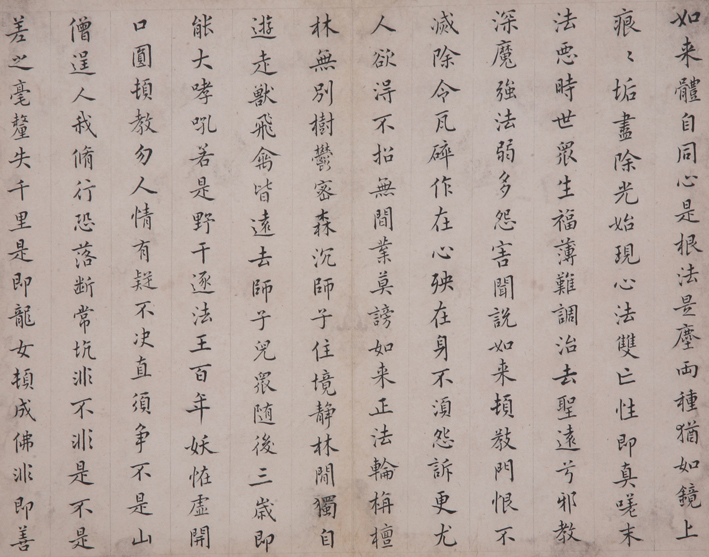 如来體自同心是根法是塵両種猶如鏡上
痕〻垢盡除光始現心法雙亡性即真嗟末
法悪時世眾生福薄難調治去聖遠兮邪教
深魔強法弱多怨害聞說如来頓教門恨不
滅除令瓦碎作在心殃在身不湏怨訴更尤
人欲淂不招無間業莫謗如来正法輪栴檀
林無別樹鬱密森沉師子住境静林間獨自
遊走獸飛禽皆遠去師子兒眾随後三歳即
能大哮吼若是野干逐法王百年妖恠虚開
口圓頓教勿人情有疑不决直須争不是山
僧逞人我脩行恐落断常坑非不非是不是
差之毫釐失千里是即龍女頓成佛非即善